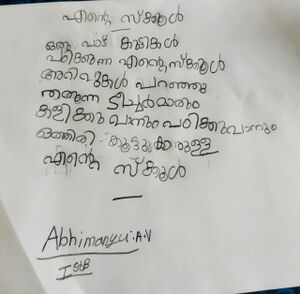 എന്റെ സ്ക്കൂൾ
ഒരു പാട് കുട്ടികൾ
പഠിക്കുന്ന എന്റെ സ്ക്കൂൾ
അറിവുകൾ പറഞ്ഞു
തരുന്ന ടീച്ചർമാരും
കളിക്കുവാനും പഠിക്കുവാനും
ഒത്തിരി കൂട്ടുക്കരുള്ള
എന്റെ സ്ക്കൂൾ
Abhimanyu.A.V
I St B